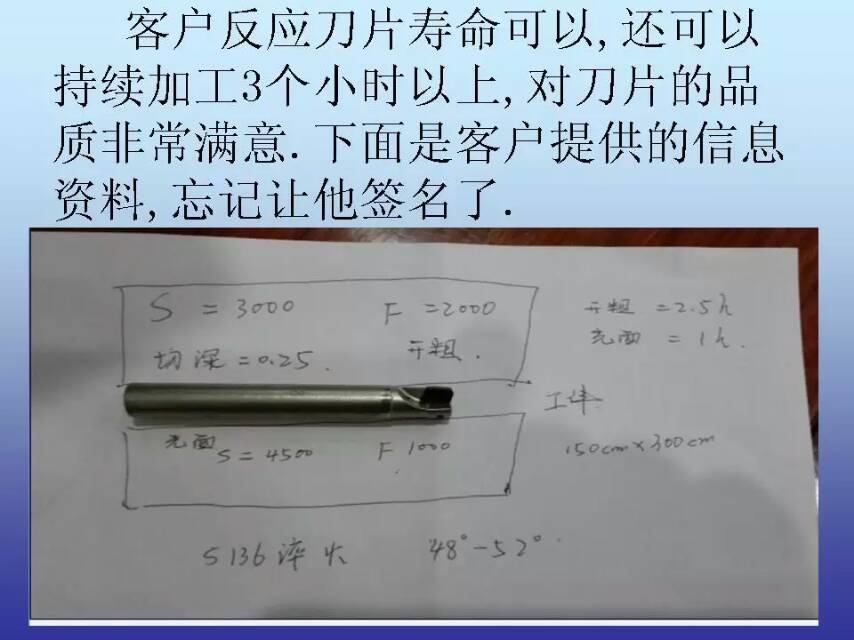 客户反应刀片寿命可以,还可以
持续加工3个小时以上,对刀片的品
质非常满意.下面是客户提供的信息
资料,忘记让他签名了.
S = 3000 F = 2000
开粗 = 2.5h
光面 = 1h.
切深 = 0.25. 开粗.
工件
光面 S = 4500 F 1000
150cm×300cm
S136 淬火 48°-52°